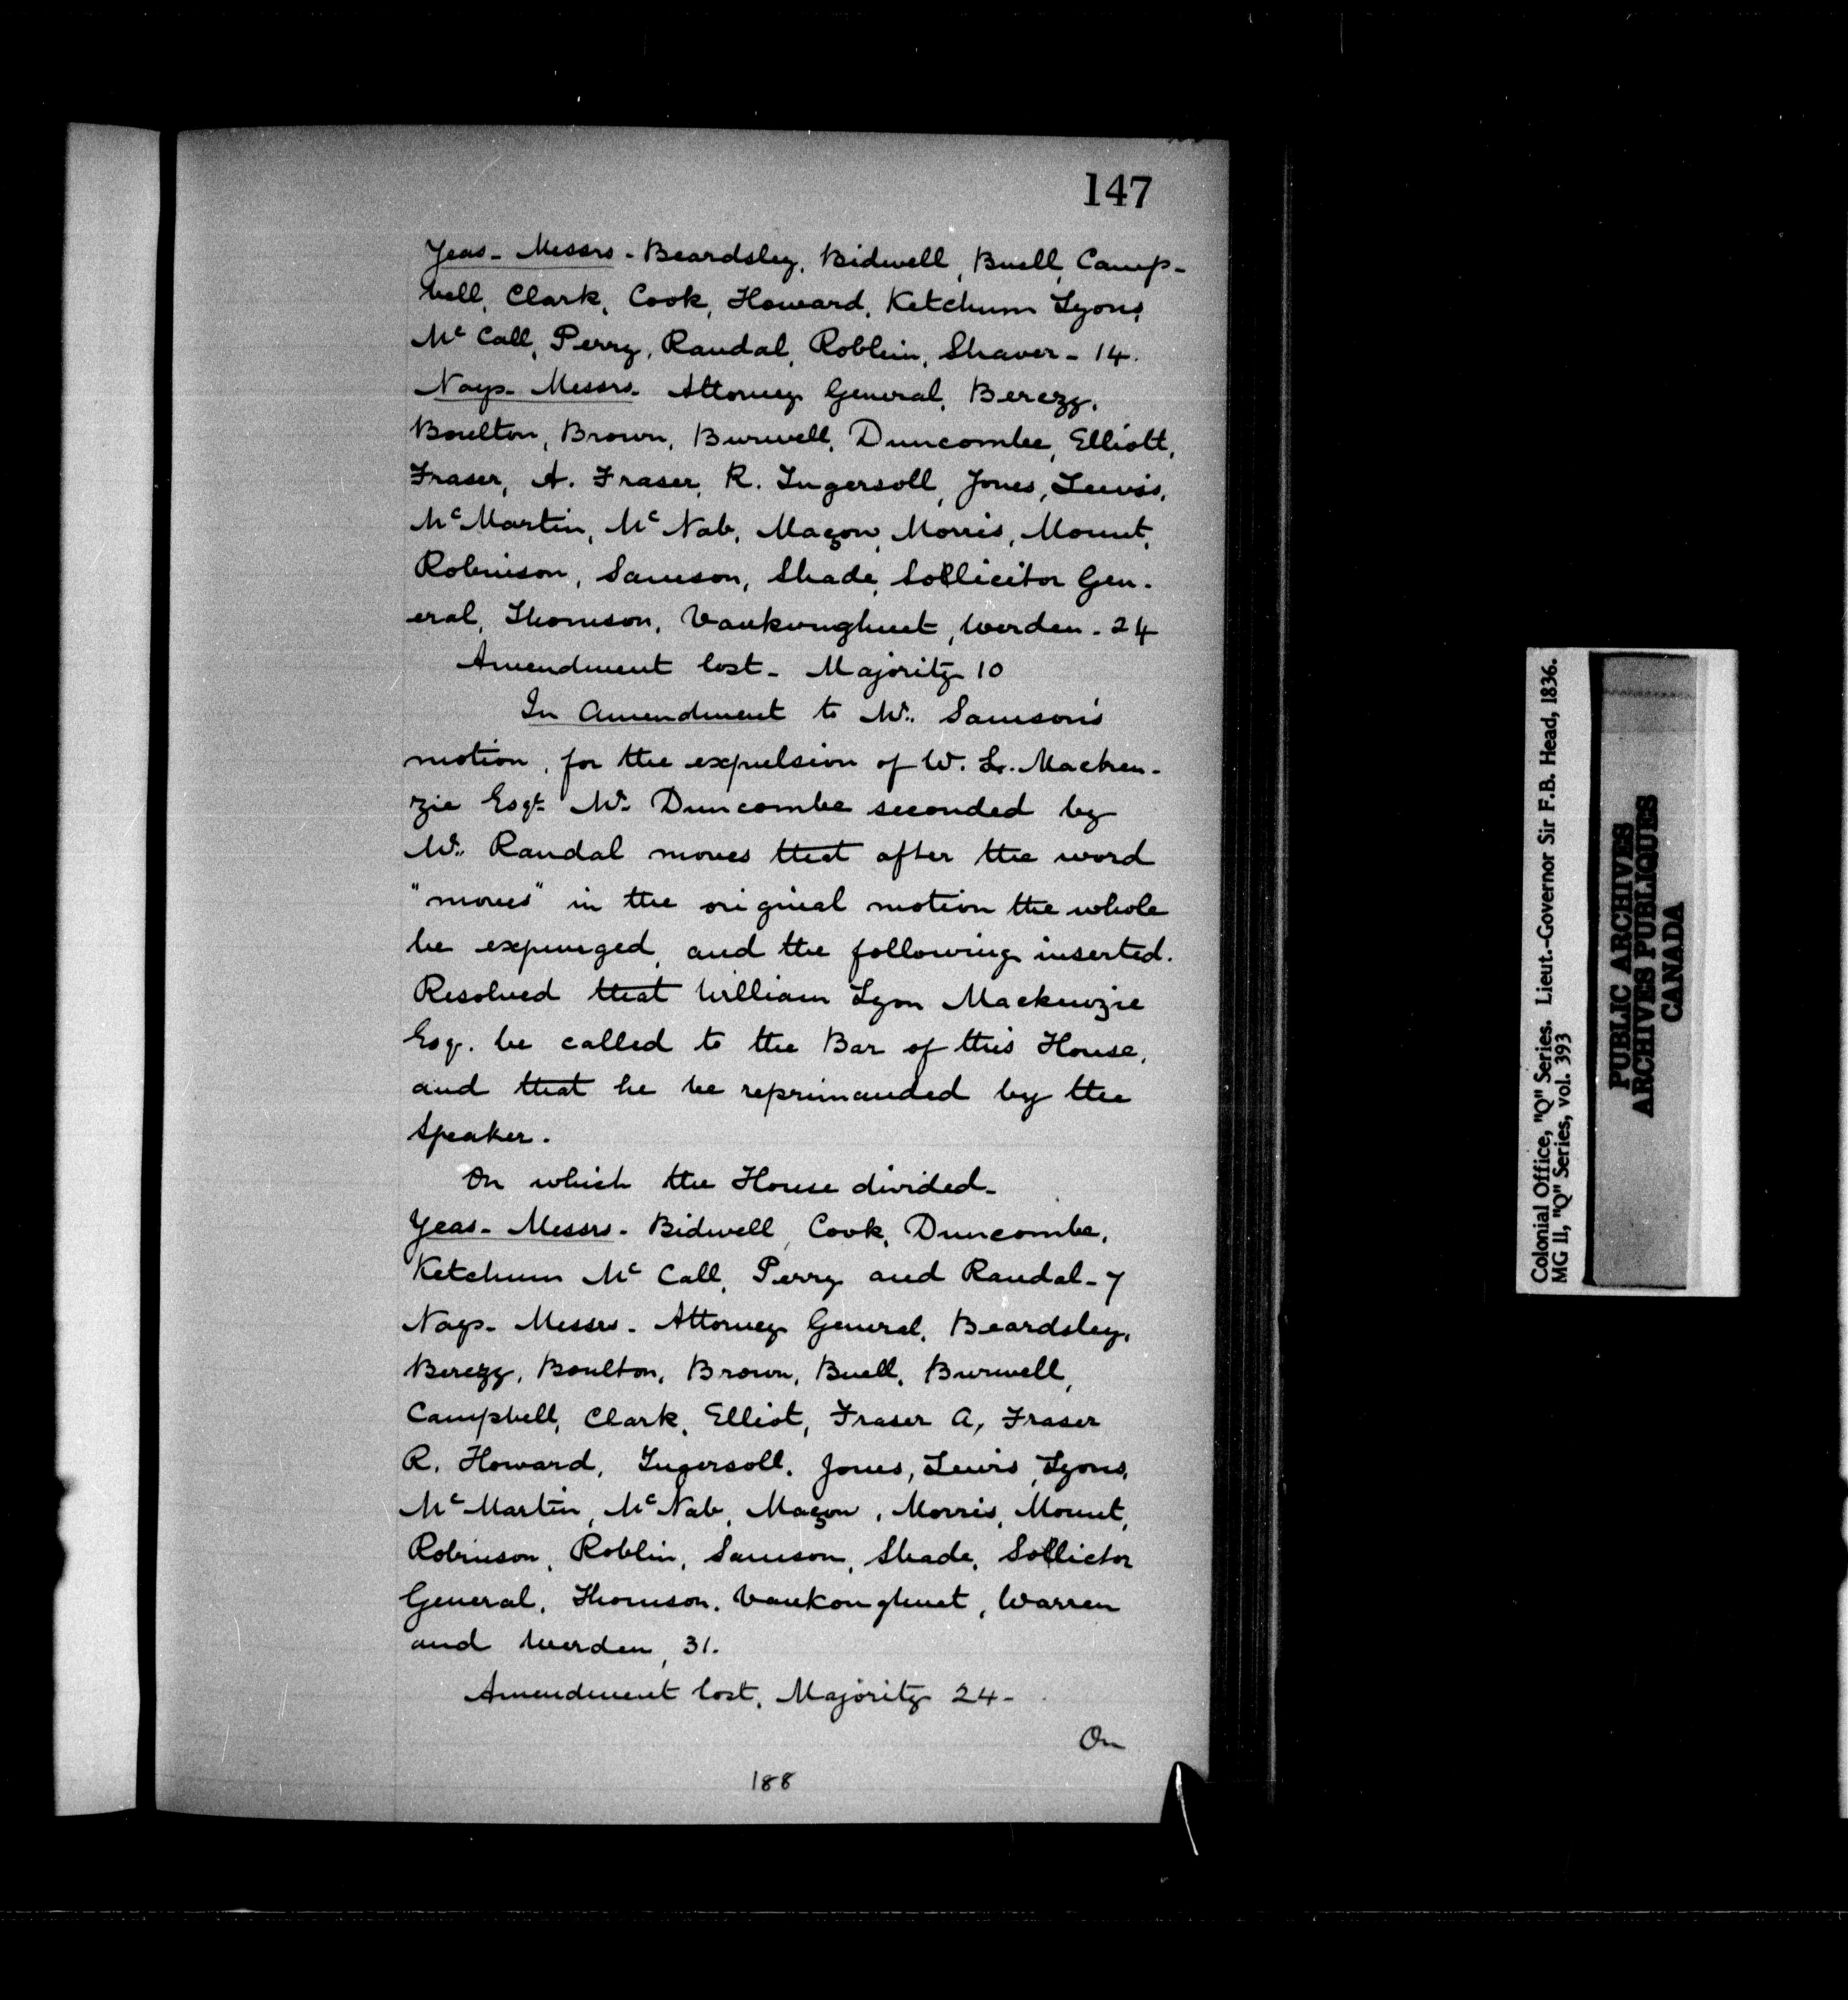 147
Yeas - Messrs - Beardsley, Bidwell, Buell, Camp-
bell, Clark, Cook, Howard, Ketchum Lyons,
Mc Call, Perry, Randal, Roblin, Shaver - 14.
Nays - Messrs - Attorney General, Berczy,
Boulton, Brown, Burwell, Duncombe, Elliott,
Fraser, A. Fraser, R. Ingersoll, Jones, Lewis,
Mc Martin, Mc Nab, Maçon, Morris, Mount,
Robinson, Samson, Shade, Sollicitor Gen-
eral, Thomson, Vankoughnet, Werden - 24
Amendment lost - Majority 10
In Amendment to Mr. Samson's
motion, for the expulsion of W. L. Macken-
zie Esqr. Mr. Duncombe seconded by
Mr. Randal moves that after the word
"moves" in the original motion the whole
be expunged, and the following inserted.
Resolved that William Lyon Mackenzie
Esqr. be called to the Bar of this House,
and that he be reprimanded by the
Speaker.
On which the House divided -
Yeas - Messrs - Bidwell, Cook, Duncombe,
Ketchum Mc Call, Perry and Randal - 7
Nays - Messrs - Attorney General, Beardsley,
Berczy, Boulton, Brown, Buell, Burwell,
Campbell, Clark, Elliot, Fraser A, Fraser
R. Howard, Ingersoll, Jones, Lewis, Lyons,
Mc Martin, Mc Nab, Maçon, Morris, Mount,
Robinson, Roblin, Samson, Shade, Sollictor
General, Thomson, Vankoughnet, Warren
and Werden, 31.
Amendment lost, Majority 24 -
On
188
Colonial Office, "Q" Series. Lieut.-Governor Sir F.B. Head, 1836.
MG 11, "Q" Series, vol. 393
PUBLIC ARCHIVES
ARCHIVES PUBLIQUES
CANADA